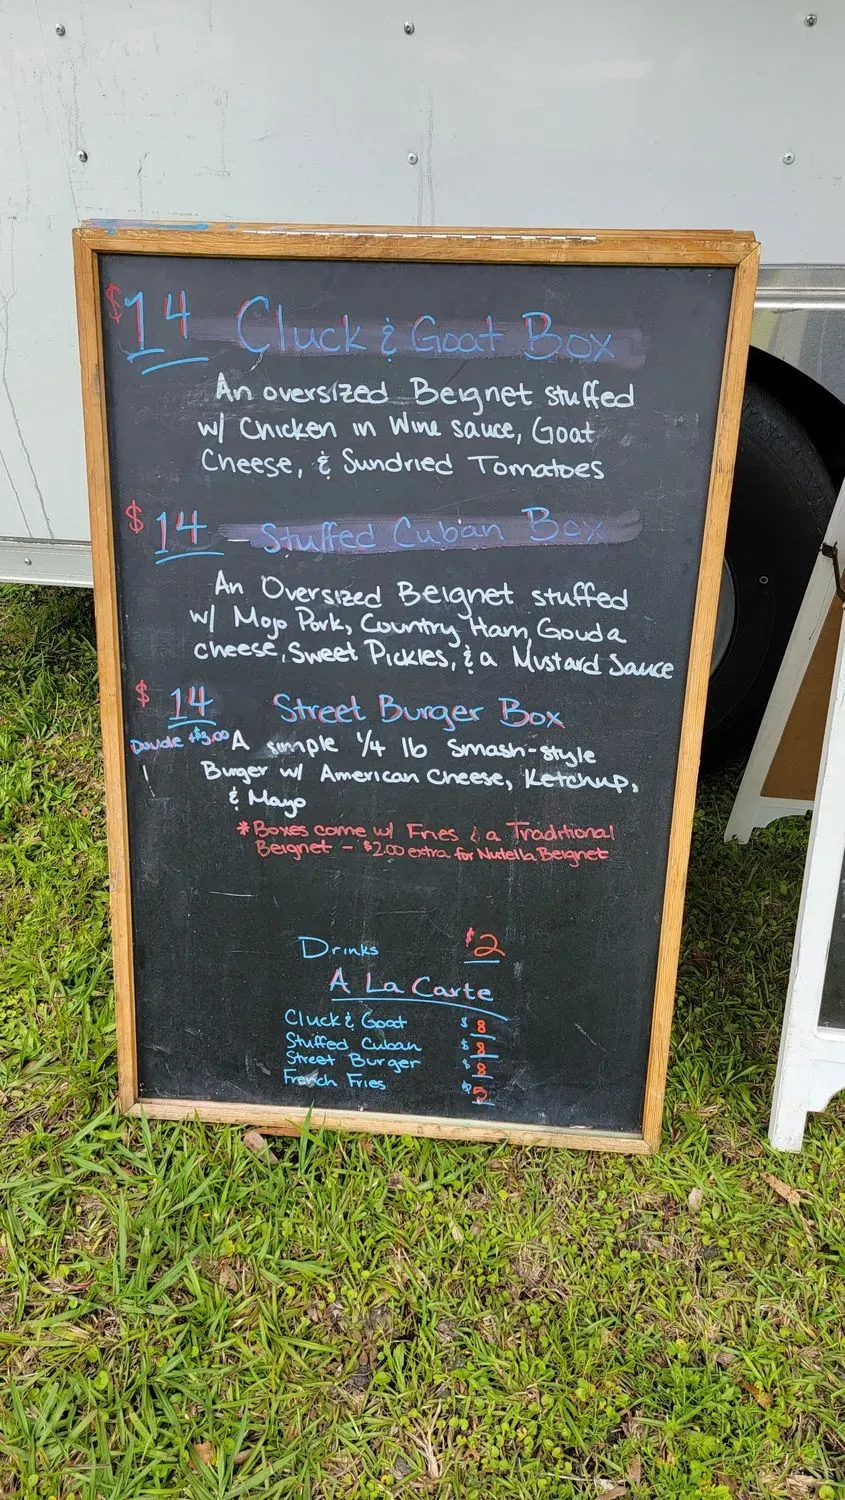 $14 Cluck & Goat Box
An oversized Beignet stuffed
w/ Chicken in Wine sauce, Goat
Cheese, & Sundried Tomatoes
$14 - Stuffed Cuban Box
An Oversized Beignet stuffed
w/ Mojo Pork, Country Ham, Gouda
cheese, Sweet Pickles, & a Mustard Sauce
$14 Street Burger Box
Double +$3.00 A simple 1/4 lb smash-style
Burger w/ American Cheese, Ketchup,
& Mayo
*Boxes come w/ Fries & a Traditional
Beignet - $2.00 extra for Nutella Beignet
Drinks $2
A La Carte
Cluck & Goat $8
Stuffed Cuban $8
Street Burger $8
French Fries $5